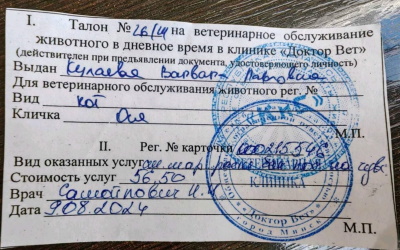 I. Талон № 26/111 на ветеринарное обслуживание
животного в дневное время в клинике «Доктор Вет»
(действителен при предъявлении документа, удостоверяющего личность)
Выдан Кулаева Варвара Павловна
Для ветеринарного обслуживания животного рег. №
Вид кот
Кличка Ося
М.П.
II. Рег. № карточки 000215546
Вид оказанных услуг
Стоимость услуг 56,50
Врач Самойлович И.И
Дата 9.08.2024
М.П.
ВЕТЕРИНАРНАЯ
КЛИНИКА
«Доктор Вет»
город Минск